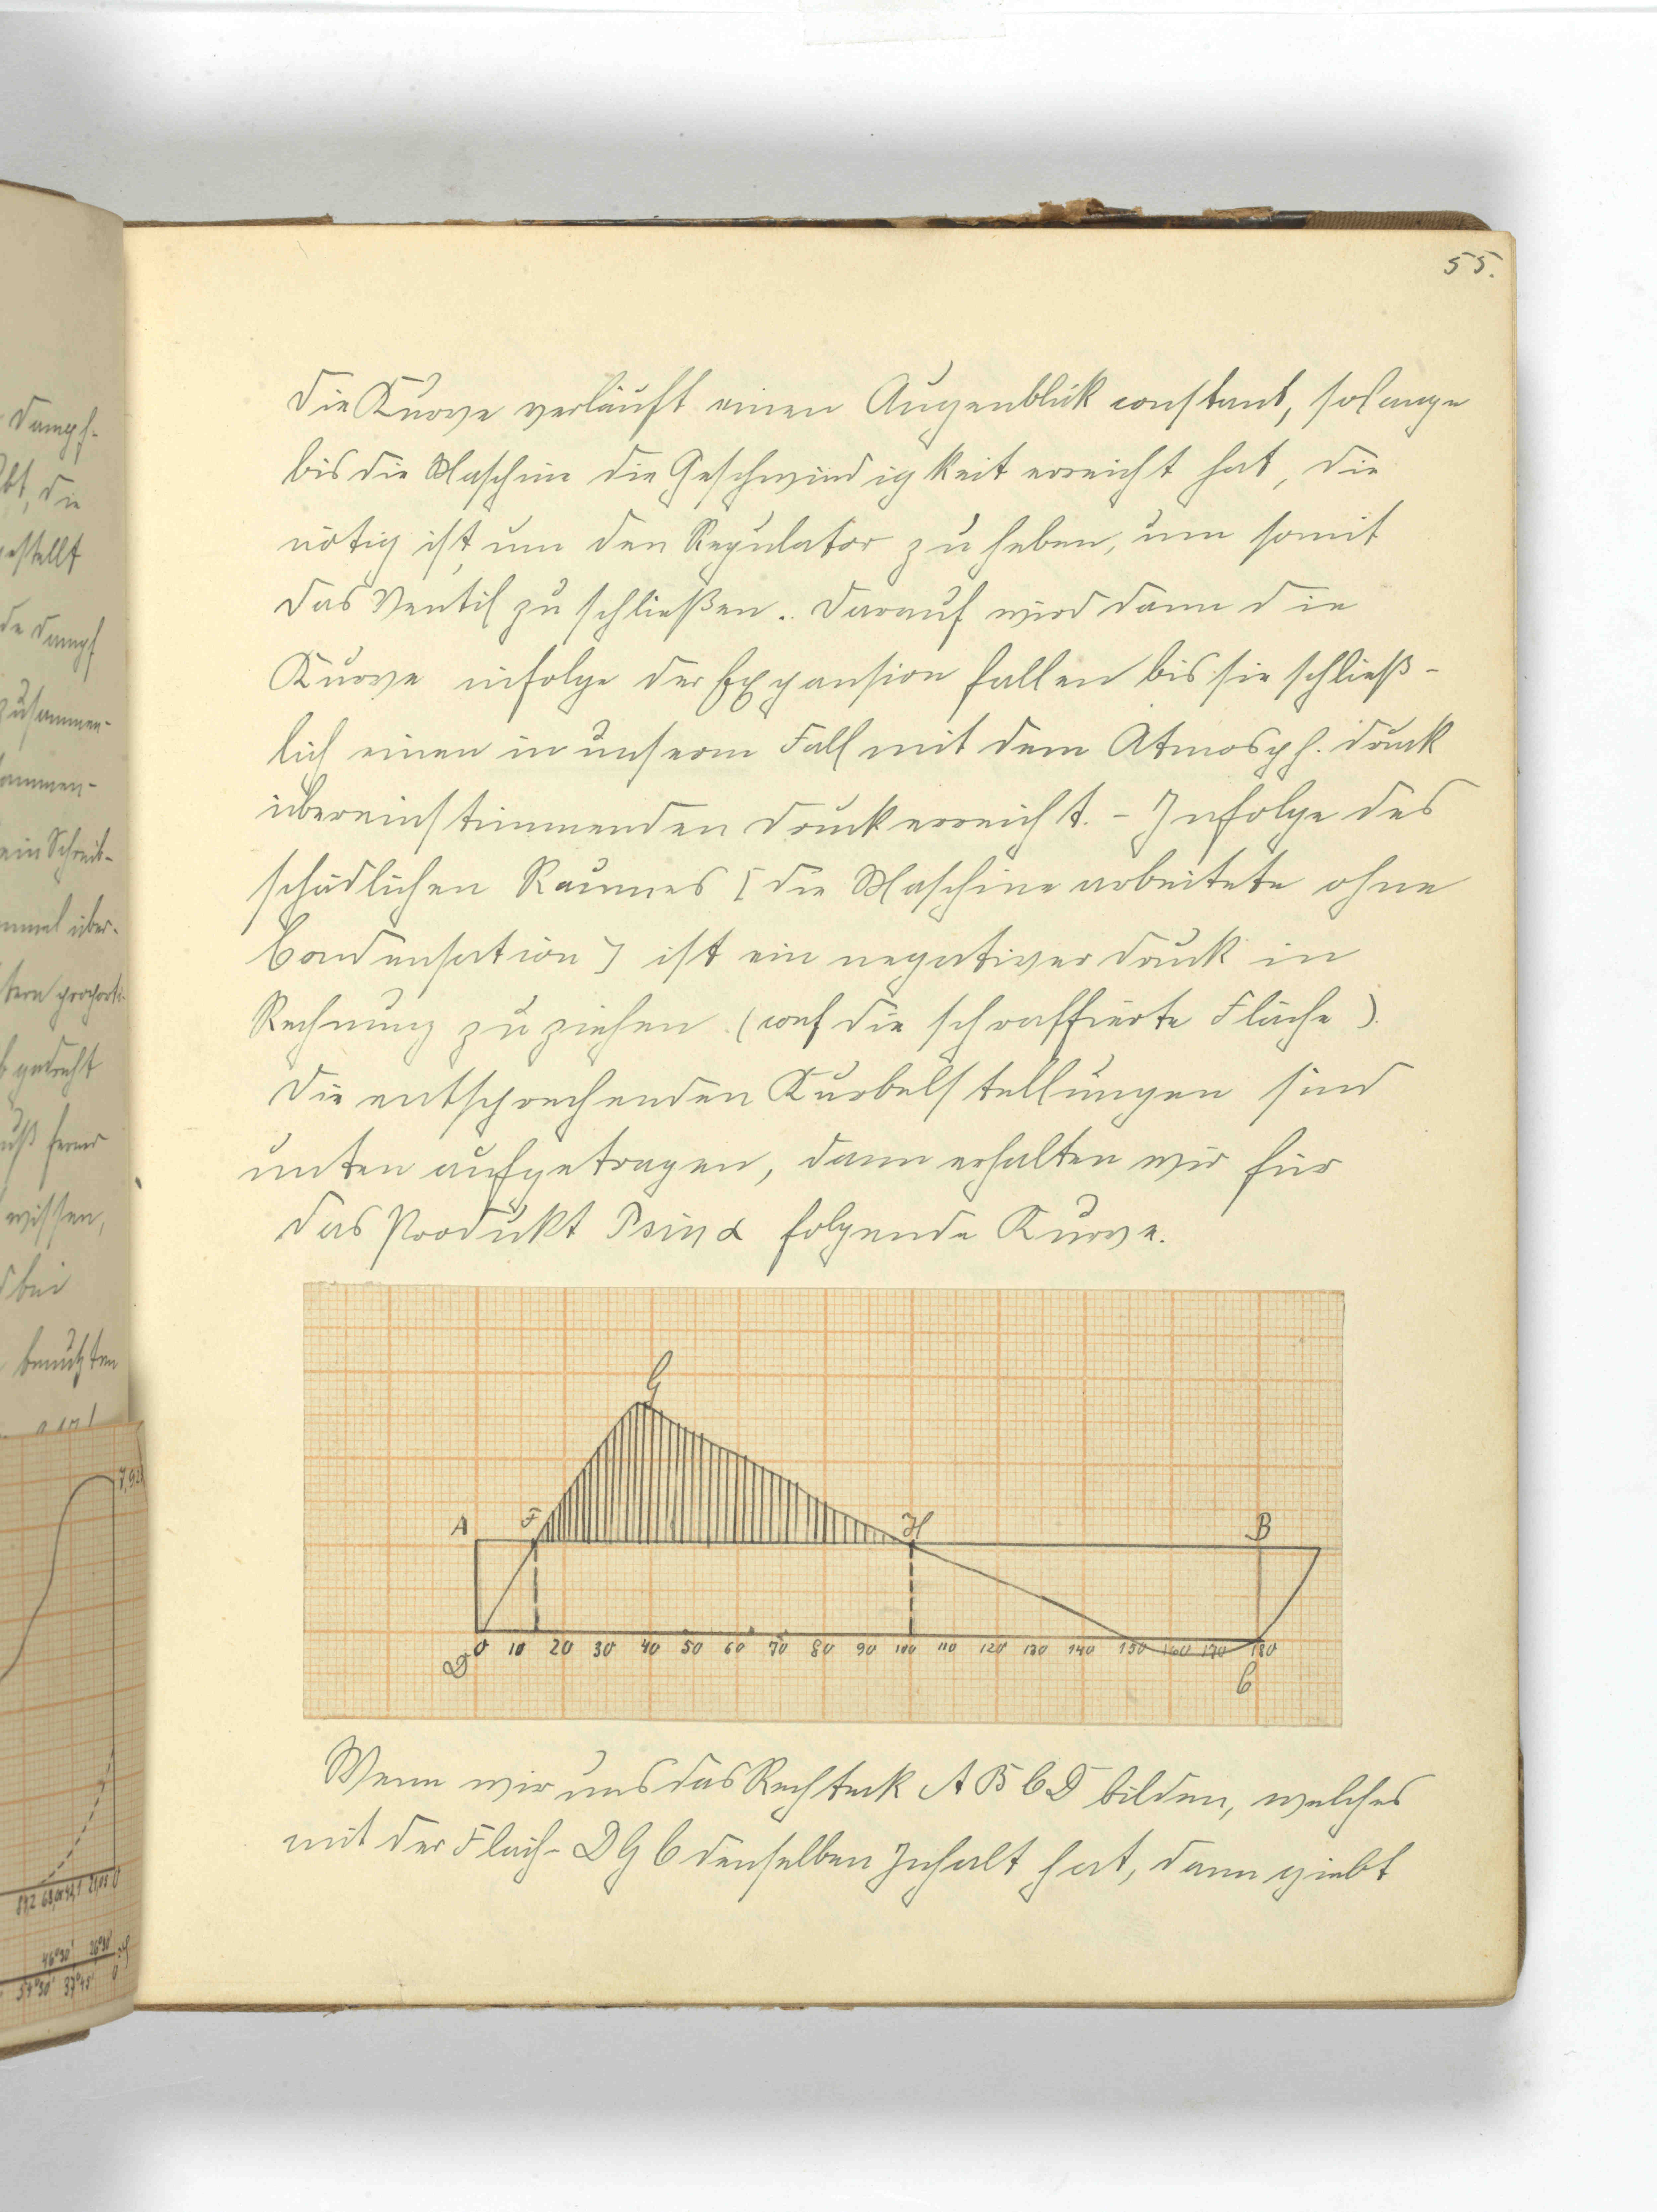 55.
Die Kurve verläuft einen Augenblick constant, solange
bis die Maschine die Geschwindigkeit erreicht hat, die
nötig ist, um den Regulator zu heben, um somit
das Ventil zu schließen. Darauf wird dann die
Kurve infolge der Expansion fallen bis sie schließ-
lich einen in unserm Fall mit dem Atmosph. druck
übereinstimmenden Druck erreicht. - Infolge des
schädlichen Raumes [die Maschine arbeitete ohne
Condensation] ist ein negativer Druck in
Rechnung zu ziehen (conf die schraffierte Fläche).
Die entsprechenden Kurbelstellungen sind
unten aufgetragen, dann erhalten wir für
das Produkt P sin α folgende Kurve.
G
A F H B
0 10 20 30 40 50 60 70 80 90 100 110 120 130 140 150 160 170 180
D C
Wenn wir uns das Rechteck ABCD bilden, welches
mit der Fläch- DGC denselben Inhalt hat, dann giebt
Dampf-
bt, die
gestellt
de Dampf
zusammen-
ammen-
ein Schreib-
nmal über-
tern proporti-
b gedreht
uß ferner
wissen,
bei
benutzten
46°30' 26°30'
57°30' 37°45' 0